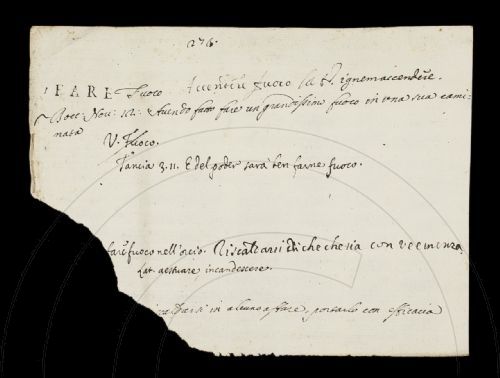 276.
FARE Fuoco Accender fuoco La t. ignem accendere.
Bocc: Nov: 12: Avendo fatto fare un grandissimo fuoco in una sua cami-
nata
V. Fuoco.
Tancia 3. 11. E del poder sarà ben farne fuoco.
far fuoco nell'orcio. Riscaldarsi di che che sia con veemenza
Lat. aestuare incandescere.
in alcuno affare, portarlo con efficacia